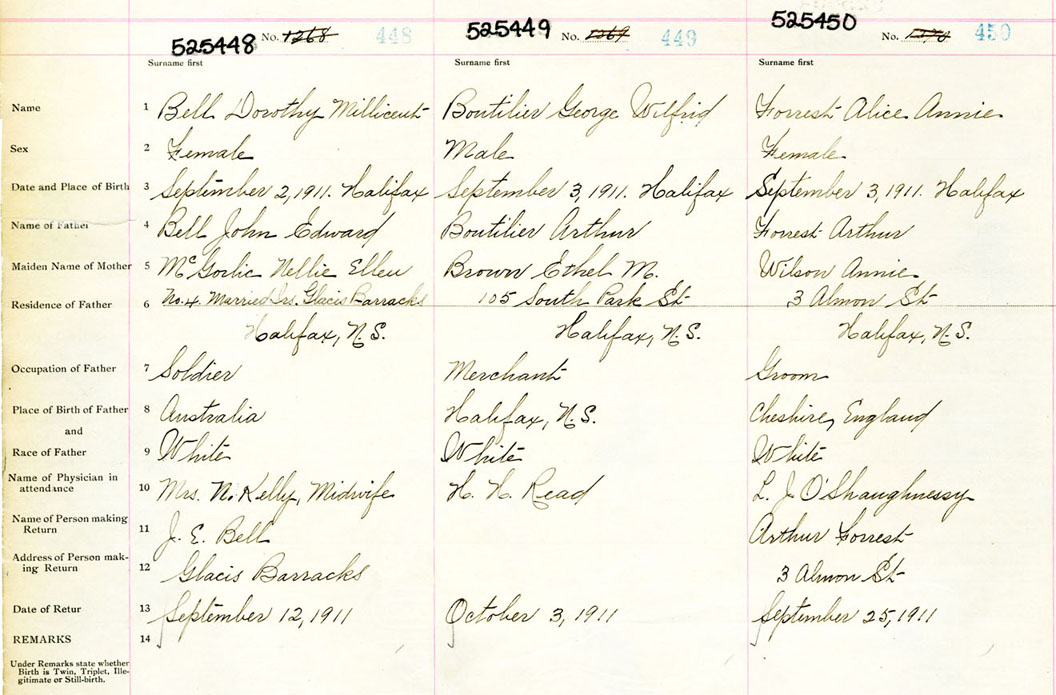 525448 No. 1268 448
525449 No. 1269 449
525450 No. 1270 450
Surname first Surname first Surname first
Name 1 Bell Dorothy Millicent Boutilier George Wilfrid Forrest Alice Annie
Sex 2 Female Male Female
Date and Place of Birth 3 September 2, 1911. Halifax September 3, 1911. Halifax September 3, 1911. Halifax
Name of Father 4 Bell John Edward Boutilier Arthur Forrest Arthur
Maiden Name of Mother 5 McGorlic Nellie Ellen Brown Ethel M. Wilson Annie
Residence of Father 6 No. 4 Married Qrs. Glacis Barracks 105 South Park St 3 Almon St
Halifax, N.S. Halifax, N.S. Halifax, N.S.
Occupation of Father 7 Soldier Merchant Groom
Place of Birth of Father 8 Australia Halifax, N.S. Cheshire, England
and
Race of Father 9 White White White
Name of Physician in
attendance 10 Mrs. N. Kelly, Midwife H. H. Read L. J. O'Shaughnessy
Name of Person making
Return 11 J. E. Bell Arthur Forrest
Address of Person mak-
ing Return 12 Glacis Barracks 3 Almon St
Date of Retur 13 September 12, 1911 October 3, 1911 September 25, 1911
REMARKS 14
Under Remarks state whether
Birth is Twin, Triplet, Ille-
gitimate or Still-birth.